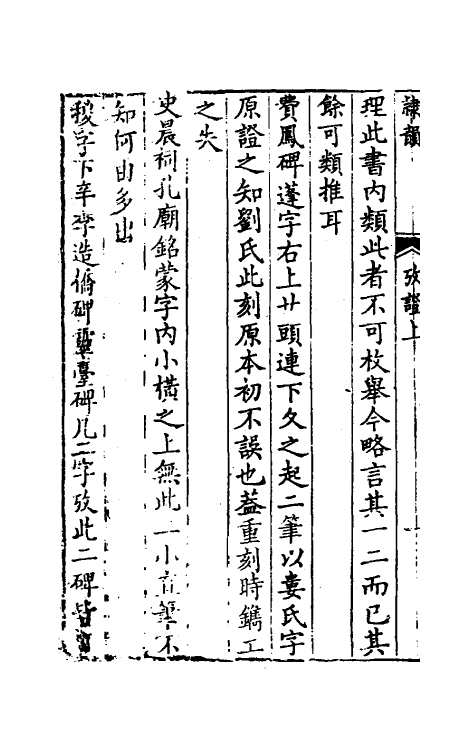 隷韻　攷證上
理此書内類此者不可枚舉今略言其一二而已其
餘可類推耳
費鳳碑蓬字右上廾頭連下夂之起二筆以婁氏字
原證之知劉氏此刻原本初不誤也葢重刻時鐫工
之失
史晨祠孔廟銘蒙字内小橫之上無此一小直 不
知何由多出
稷字下辛李造橋碑靈臺碑凡二字攷此二碑皆